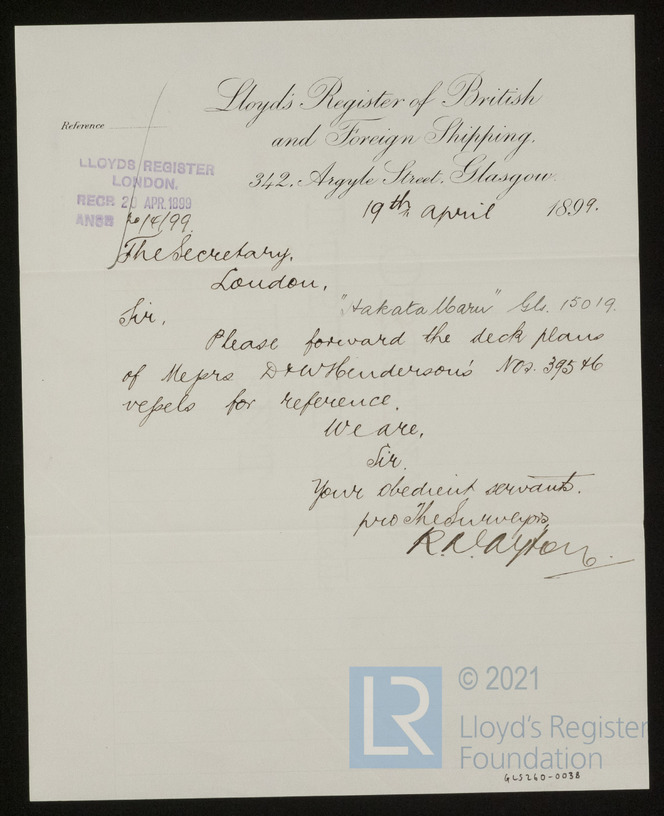 Lloyd's Register of British
and Foreign Shipping.
342, Argyle Street, Glasgow.
Reference
LLOYDS REGISTER
LONDON.
RECR 20 APR. 1899
ANSD
19th April 1899.
The Secretary,
London,
Sir,
"Hakata Maru" Gls. 15019.
Please forward the deck plans
of Messrs D & W Henderson's Nos. 395 46
vessels for reference.
We are,
Sir.
Your obedient servants.
pro The Surveyors
© 2021
LR
Lloyd's Register
Foundation
GLS260-0038